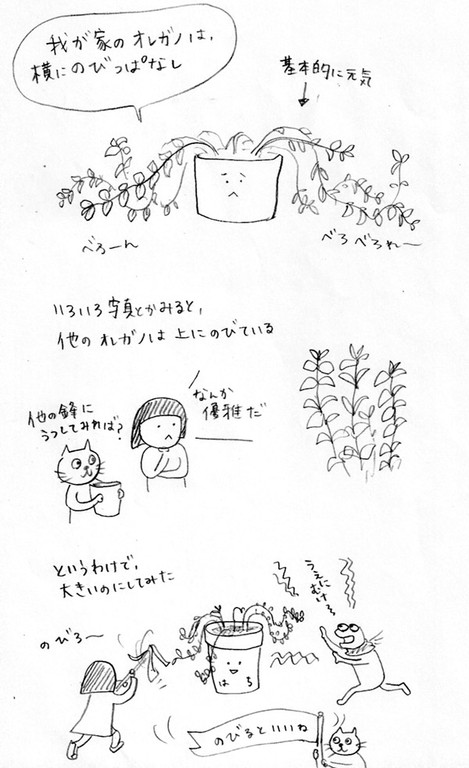 我が家のオレガノは、
横にのびっぱなし
基本的に元気
べろーん
べろべろれ〜
いろいろ写真とかみると、
他のオレガノは上にのびている
なんか
優雅だ
他の鉢に
うつしてみれば?
というわけで、
大きいのにしてみた
のびろ〜
うえに
むけろ〜
はち
のびるといいね